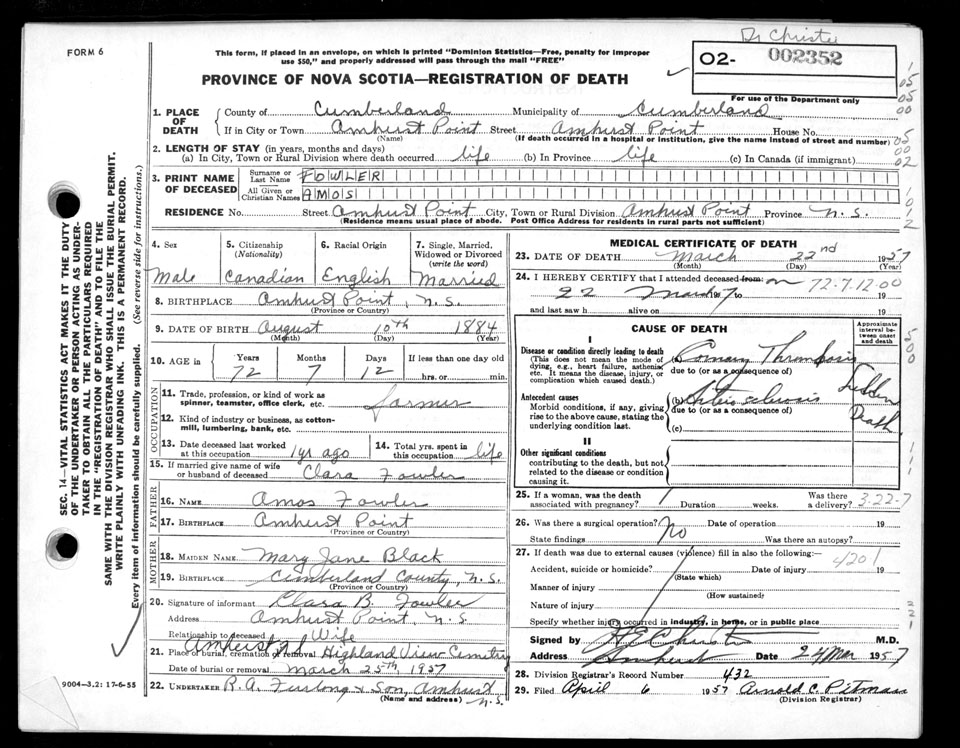 Dr Christie
FORM 6
This form, if placed in an envelope, on which is printed "Dominion Statistics—Free, penalty for improper
use $50," and properly addressed will pass through the mail "FREE"
O2- 002352
For use of the Department only
PROVINCE OF NOVA SCOTIA—REGISTRATION OF DEATH
1. PLACE OF DEATH County of Cumberland Municipality of Cumberland
If in City or Town Amhurst Point Street Amhurst Point House No.
(Name) (If death occurred in a hospital or institution, give the name instead of street and number)
2. LENGTH OF STAY (in years, months and days)
(a) In City, Town or Rural Division where death occurred life (b) In Province life (c) In Canada (if immigrant)
3. PRINT NAME OF DECEASED Surname or Last Name FOWLER
All Given or Christian Names AMOS
RESIDENCE No. Street Amhurst Point City, Town or Rural Division Amhurst Point Province N.S.
(Residence means usual place of abode. Post Office Address for residents in rural parts not sufficient)
4. Sex 5. Citizenship (Nationality) 6. Racial Origin 7. Single, Married, Widowed or Divorced (write the word)
Male Canadian English Married
8. BIRTHPLACE Amhurst Point, N.S.
(Province or Country)
9. DATE OF BIRTH August 10th 1884
(Month) (Day) (Year)
10. AGE in Years Months Days If less than one day old
72 7 12 hrs. or min.
OCCUPATION
11. Trade, profession, or kind of work as spinner, teamster, office clerk, etc. farmer
12. Kind of industry or business, as cotton-mill, lumbering, bank, etc.
13. Date deceased last worked at this occupation 1yr ago 14. Total yrs. spent in this occupation life
15. If married give name of wife or husband of deceased Clara Fowler
FATHER
16. NAME Amos Fowler
17. BIRTHPLACE Amhurst Point
(Province or Country)
MOTHER
18. MAIDEN NAME Mary Jane Black
19. BIRTHPLACE Cumberland County, N.S.
(Province or Country)
20. Signature of informant Clara B. Fowler
Address Amhurst Point, N.S.
Relationship to deceased Wife
21. Place of burial, cremation or removal Highland View Cemetry
Date of burial or removal March 25th 1957
22. UNDERTAKER R.A. Furlong & Son, Amhurst N.S.
(Name and address)
MEDICAL CERTIFICATE OF DEATH
23. DATE OF DEATH March 22nd 1957
(Month) (Day) (Year)
24. I HEREBY CERTIFY that I attended deceased from on 72.7.12.00
22 March 57 to 19
and last saw h alive on 19
CAUSE OF DEATH
Approximate interval between onset and death
I
Disease or condition directly leading to death (a) Coronary Thrombosis
(This does not mean the mode of dying, e.g., heart failure, asthenia, etc. It means the disease, injury, or complication which caused death.)
due to (or as a consequence of)
Sudden Death
Antecedent causes (b) Arterio sclerosis
Morbid conditions, if any, giving rise to the above cause, stating the underlying condition last.
due to (or as a consequence of)
(c)
II
Other significant conditions
contributing to the death, but not related to the disease or condition causing it.
25. If a woman, was the death associated with pregnancy? Duration weeks. Was there a delivery? 3.22.7
26. Was there a surgical operation? No Date of operation 19
State findings Was there an autopsy?
27. If death was due to external causes (violence) fill in also the following:— 4201
Accident, suicide or homicide? Date of injury 19
(State which)
Manner of injury
(How sustained)
Nature of injury
Specify whether injury occurred in industry, in home, or in public place
Signed by H E Christie M.D.
Address Amhurst Date 24 Mar 1957
28. Division Registrar's Record Number 432
29. Filed April 6 1957 Arnold C. Pitman
(Division Registrar)
SEC. 14—VITAL STATISTICS ACT MAKES IT THE DUTY
OF THE UNDERTAKER OR PERSON ACTING AS UNDER-
TAKER TO OBTAIN ALL THE PARTICULARS REQUIRED
IN THE "REGISTRATION OF DEATH" AND TO FILE THE
SAME WITH THE DIVISION REGISTRAR WHO SHALL ISSUE THE BURIAL PERMIT.
WRITE PLAINLY WITH UNFADING INK. THIS IS A PERMANENT RECORD.
Every item of information should be carefully supplied. (See reverse side for instructions.)
9004—3.2: 17-6-55